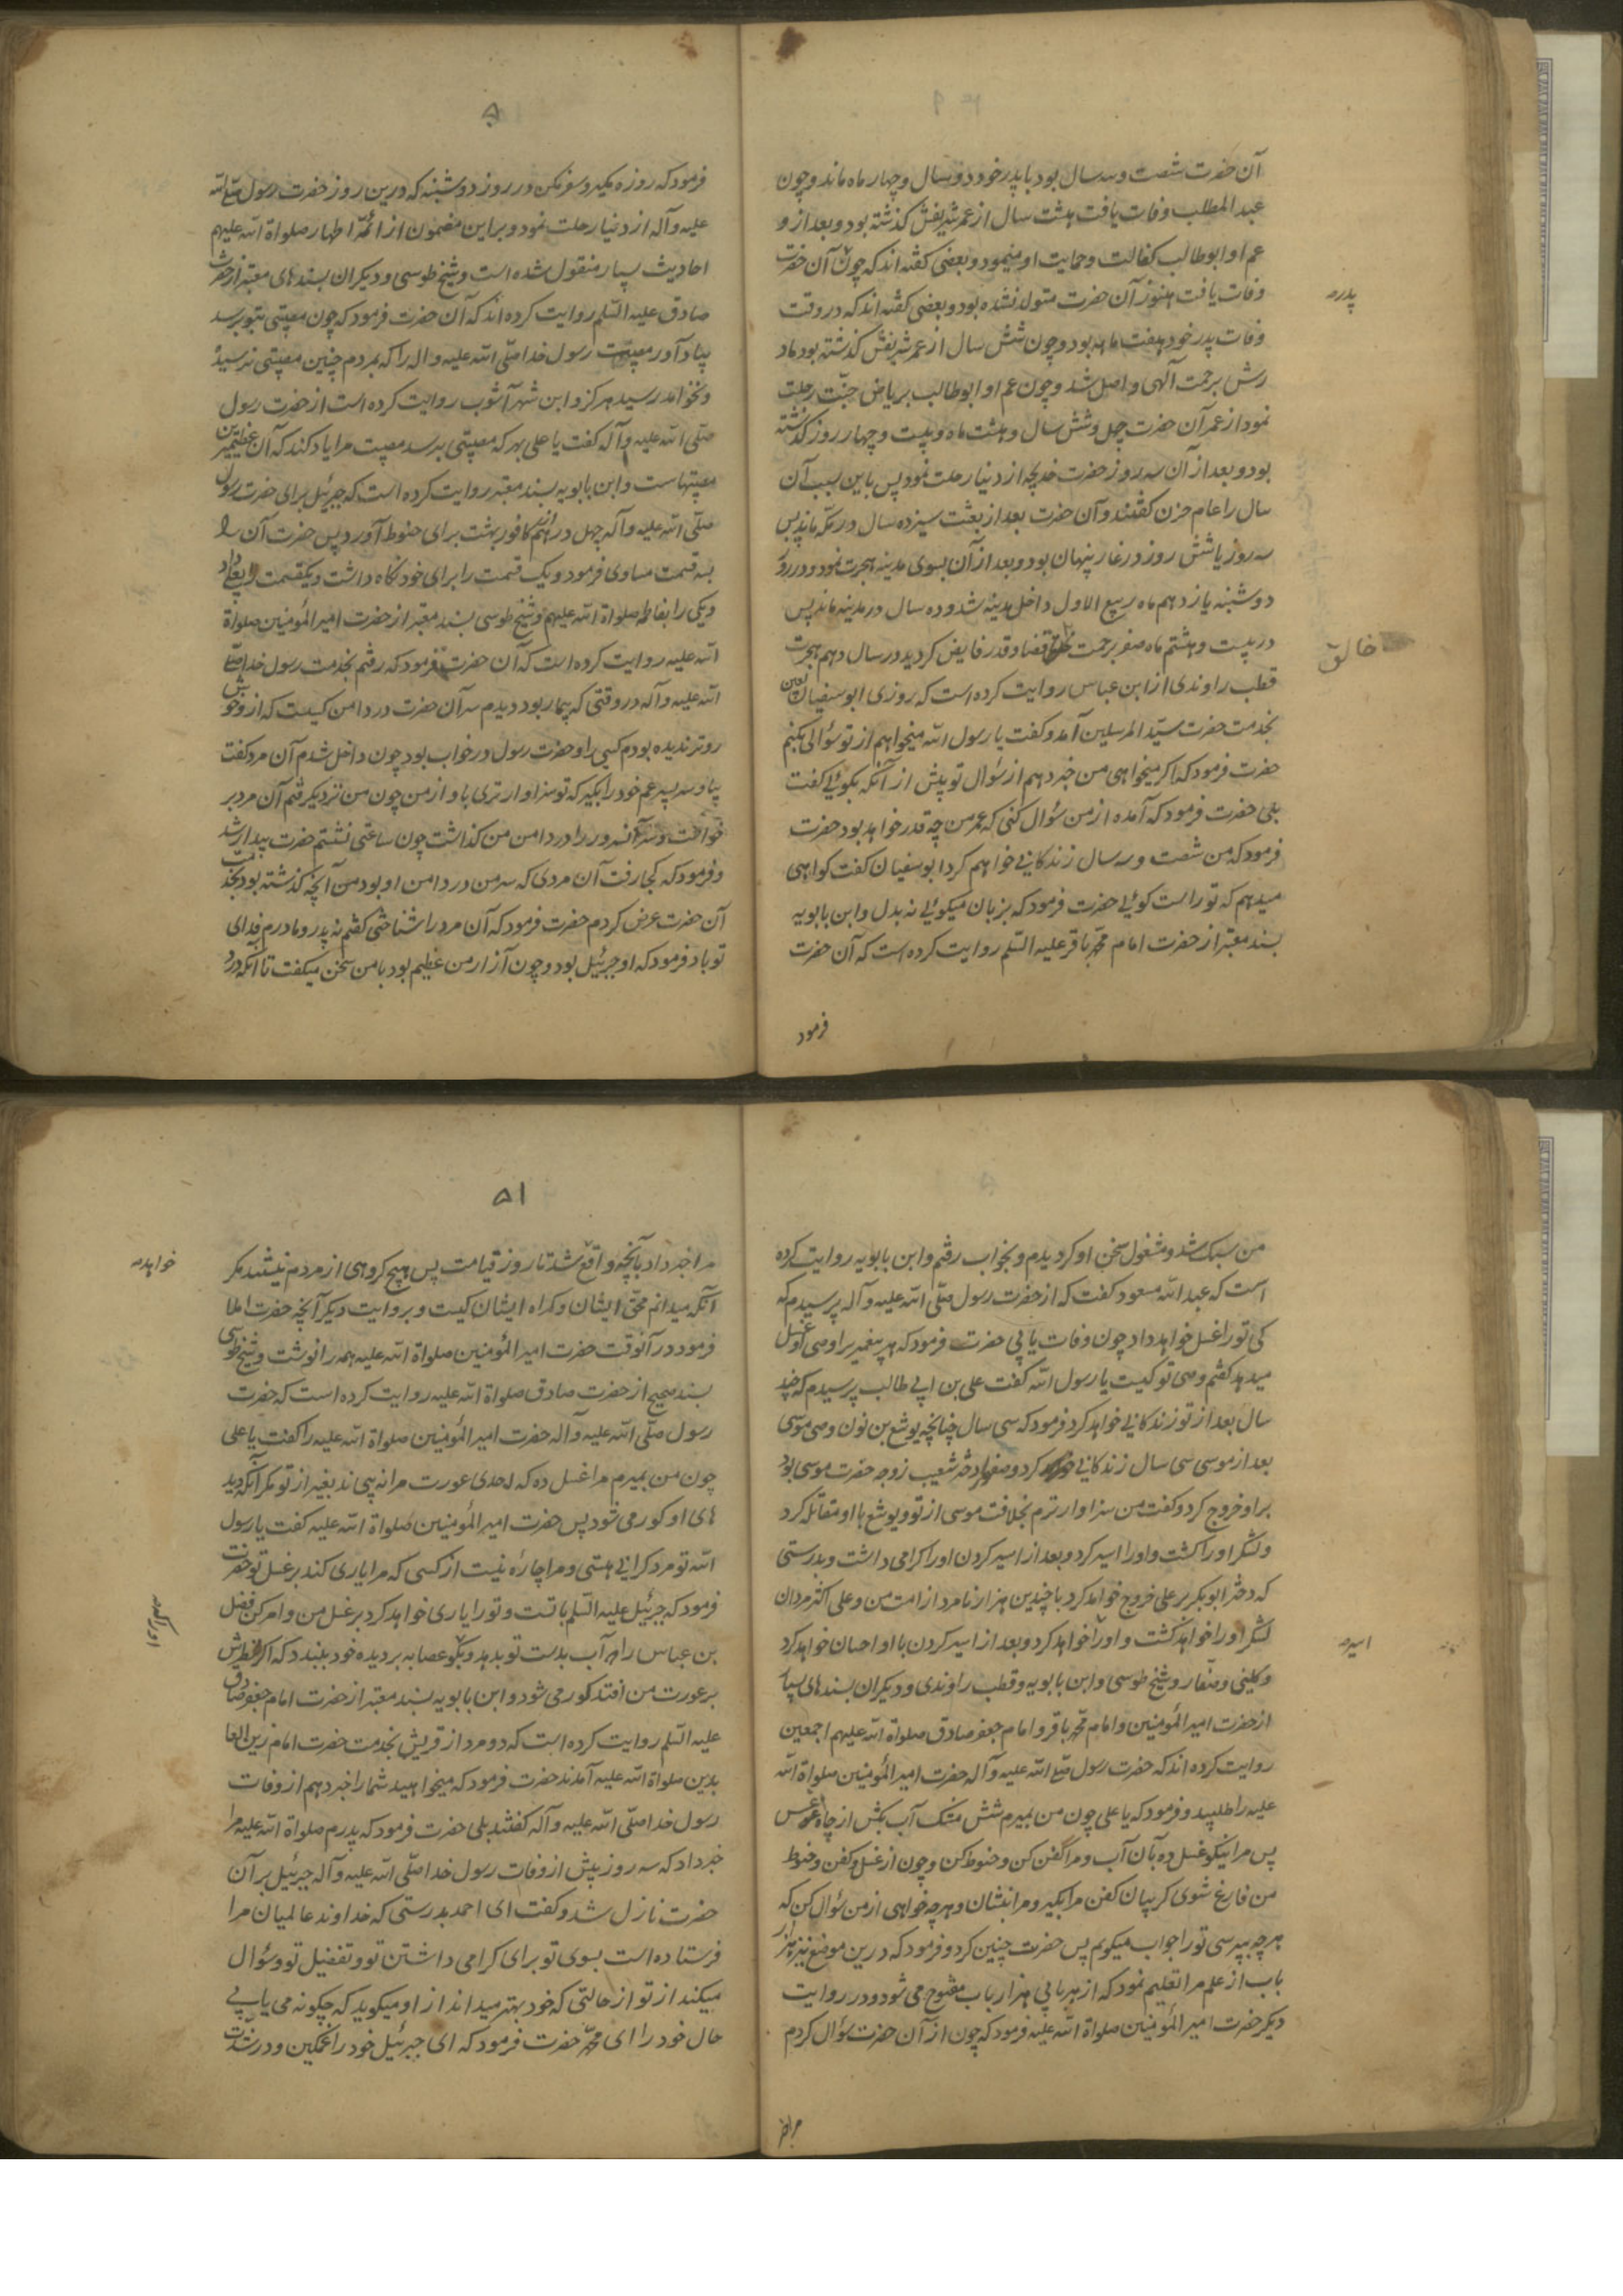 آن حضرت شصت و سه سال بود با پدر خود دو سال و چهار ماه ماند و چون
عبد المطلب وفات یافت هشت سال از عمر شریفش کذشته بود و بعد از و
عم او ابو طالب کفالت و حمایت او مینمود و بعضی کفته اند که چون آن حضرت
پدرـه
وفات یافت هنوز آن حضرت متولد نشده بود و بعضی کفته اند که در وقت
وفات پدر خود هفت ماهه بود و چون شش سال از عمر شریفش کذشته بود ماد
رش برحمت آلهی واصل شد و چون عم او ابو طالب بریاض جنّت رحلت
نمود از عمر آن حضرت چهل و شش سال و هشت ماه و بیست و چهار روز کذشته
بود و بعد از آن سه روز حضرت خدیجه از دنیا رحلت نمود پس باین سبب آن
سال را عام حزن کفتند و آن حضرت بعد از بعثت سیزده سال در مکّه ماند پس
سه روز یا شش روز در غار پنهان بود و بعد از آن بسوی مدینه هجرت نمود و در روز
دوشنبه یازدهم ماه ربیع الاول داخل مدینه شد و ده سال در مدینه ماند پس
در بیست و هشتم ماه صفر برحمت قضا و قدر فایض کردید در سال دهم هجرت
خالق
قطب راوندی از ابن عباس روایت کرده است که روزی ابو سفیان لعین
بخدمت حضرت سیّد المرسلین آمد و کفت یا رسول الله میخواهم از تو سؤالی بکنم
حضرت فرمود که اکر میخواهی من خبر دهم از سؤال تو پیش از آنکه بکوئی کفت
بلی حضرت فرمود که آمده از من سؤال کنی که عمر من چه قدر خواهد بود حضرت
فرمود که من شصت و سه سال زندکانی خواهم کرد ابو سفیان کفت کواهی
میدهم که تو راست کوئی حضرت فرمود که بزبان میکوئی نه بدل و ابن بابویه
بسند معتبر از حضرت امام محمّد باقر علیه السّلم روایت کرده است که آن حضرت
فرمود
فرمود که روزه مکیر و سفر مکن در روز دوشنبه که درین روز حضرت رسول صلّی الله
علیه و آله از دنیا رحلت نمود و بر این مضمون از ائمّه اطهار صلواة الله علیهم
احادیث بسیار منقول شده است و شیخ طوسی و دیکران بسندهای معتبر از حضرت
صادق علیه السّلم روایت کرده اند که آن حضرت فرمود که چون مصیبتی بتو برسد
بیاد آور مصیبت رسول خدا صلّی الله علیه و اله را که بمردم چنین مصیبتی نرسیده
و نخواهد رسید هرکز و ابن شهر آشوب روایت کرده است از حضرت رسول
صلّی الله علیه و آله کفت یا علی بهر که مصیبتی برسد مصیبت مرا یاد کند که آن عظیمترین
مصیبتهاست و ابن بابویه بسند معتبر روایت کرده است که جبرئیل برای حضرت رسول
صلّی الله علیه و آله چهل درهم کافور بهشت برای حنوط آورد پس حضرت آن را
بسه قسمت مساوی فرمود و یک قسمت را برای خود نکاه داشت و یکقسمت را بعلی داد
و یکی را بفاطمه صلواة الله علیهم و شیخ طوسی بسند معتبر از حضرت امیر المؤمنین صلواة
الله علیه روایت کرده است که آن حضرت فرمود که رفتم بخدمت رسول خدا صلّی
الله علیه و آله در وقتی که بیمار بود دیدم سر آن حضرت در دامن کیست که از و خوش
روتر ندیده بودم کسی را و حضرت رسول در خواب بود چون داخل شدم آن مرد کفت
بیا و سر پسر عم خود را بکیر که تو سزاوارتری باو از من چون من نزدیک رفتم آن مرد بر
خواست و سر آنسرور را در دامن من کذاشت چون ساعتی نشستم حضرت بیدار شد
و فرمود که کجا رفت آن مردی که سر من در دامن او بود من آنچه کذشته بود بخدمت
آن حضرت عرض کردم حضرت فرمود که آن مرد را شناختی کفتم نه پدر و مادرم فدای
تو باد فرمود که او جبرئیل بود و چون آزار من عظیم بود با من سخن میکفت تا آنکه درد
من سبک شد و مشغول سخن او کردیدم و بخواب رفتم و ابن بابویه روایت کرده
است که عبد الله مسعود کفت که از حضرت رسول صلّی الله علیه و آله پرسیدم که
کی تو را غسل خواهد داد چون وفات یابی حضرت فرمود که هر پیغمبر را وصی او غسل
میدهد کفتم وصی تو کیست یا رسول الله کفت علی بن ابی طالب پرسیدم که چند
سال بعد از تو زندکانی خواهد کرد فرمود که سی سال چنانچه یوشع بن نون وصی موسی
بعد از موسی سی سال زندکانی کرد و صفرا دختر شعیب زوجه حضرت موسی بود
بر او خروج کرد و کفت من سزاوار ترم بخلافت موسی از تو و یوشع با او مقاتله کرد
و لشکر او را کشت و او را اسیر کرد و بعد از اسیر کردن او را کرامی داشت و بدرستی
که دختر ابو بکر بر علی خروج خواهد کرد با چندین هزار نامرد از امت من و علی اکثر مردان
لشکر او را خواهد کشت و او را خواهد کرد و بعد از اسیر کردن با او احسان خواهد کرد
اسیرـه
و کلینی و صفار و شیخ طوسی و ابن بابویه و قطب راوندی و دیکران بسندهای بسیار
از حضرت امیر المؤمنین و امام محمّد باقر و امام جعفر صادق صلواة الله علیهم اجمعین
روایت کرده اند که حضرت رسول صلّی الله علیه و آله حضرت امیر المؤمنین صلواة الله
علیه را طلبید و فرمود که یا علی چون من بمیرم شش مشک آب بکش از چاه غرس
پس مرا نیکو غسل ده بآن آب و مرا کفن کن و حنوط کن و چون از غسل و کفن و حنوط
من فارغ شوی کریبان کفن مرا بکیر و مرا بنشان و هر چه خواهی از من سؤال کن که
هر چه بپرسی تو را جواب میکویم پس حضرت چنین کرد و فرمود که درین موضع نیز هزار
باب از علم مرا تعلیم نمود که از هر بابی هزار باب مفتوح می شود و در روایت
دیکر حضرت امیر المؤمنین صلواة الله علیه فرمود که چون از آن حضرت سؤال کردم
مرا خبر
۵۱
مرا خبر داد بآنچه واقع شد تا روز قیامت پس هیچ کروهی از مردم نیستند مکر
خواهدـه
آنکه میدانم محقّ ایشان و کمراه ایشان کیست و بروایت دیکر آنچه حضرت املا
فرمود در آنوقت حضرت امیر المؤمنین صلواة الله علیه همه را نوشت و شیخ طوسی
بسند صحیح از حضرت صادق صلواة الله علیه روایت کرده است که حضرت
رسول صلّی الله علیه و آله حضرت امیر المؤمنین صلواة الله علیه را کفت یا علی
چون من بمیرم مرا غسل ده که احدی عورت مرا نه بیند بغیر از تو مکر آنکه دید
های او کور می شود پس حضرت امیر المؤمنین صلواة الله علیه کفت یا رسول
الله تو مرد کرانی هستی و مرا چاره نیست از کسی که مرا یاری کند بر غسل تو حضرت
فرمود که جبرئیل علیه السّلم با تست و تو را یاری خواهد کرد بر غسل من و امر کن فضل
بن عباس را که آب بدست تو بدهد و بکو عصابه بر دیده خود ببندد که اکر نظرش
بر عورت من افتد کور می شود و ابن بابویه بسند معتبر از حضرت امام جعفر صادق
علیه السّلم روایت کرده است که دو مرد از قریش بخدمت حضرت امام زین العا
بدین صلواة الله علیه آمدند حضرت فرمود که میخواهید شما را خبر دهم از وفات
رسول خدا صلّی الله علیه و آله کفتند بلی حضرت فرمود که پدرم صلواة الله علیه مرا
خبر داد که سه روز پیش از وفات رسول خدا صلّی الله علیه و آله جبرئیل بر آن
حضرت نازل شد و کفت ای احمد بدرستی که خداوند عالمیان مرا
فرستاده است بسوی تو برای کرامی داشتن تو و تفضیل تو و سؤال
میکند از تو از حالتی که خود بهتر میداند از او میکوید که چکونه می یابی
حال خود را ای محمّد حضرت فرمود که ای جبرئیل خود را غمکین و در شدّت